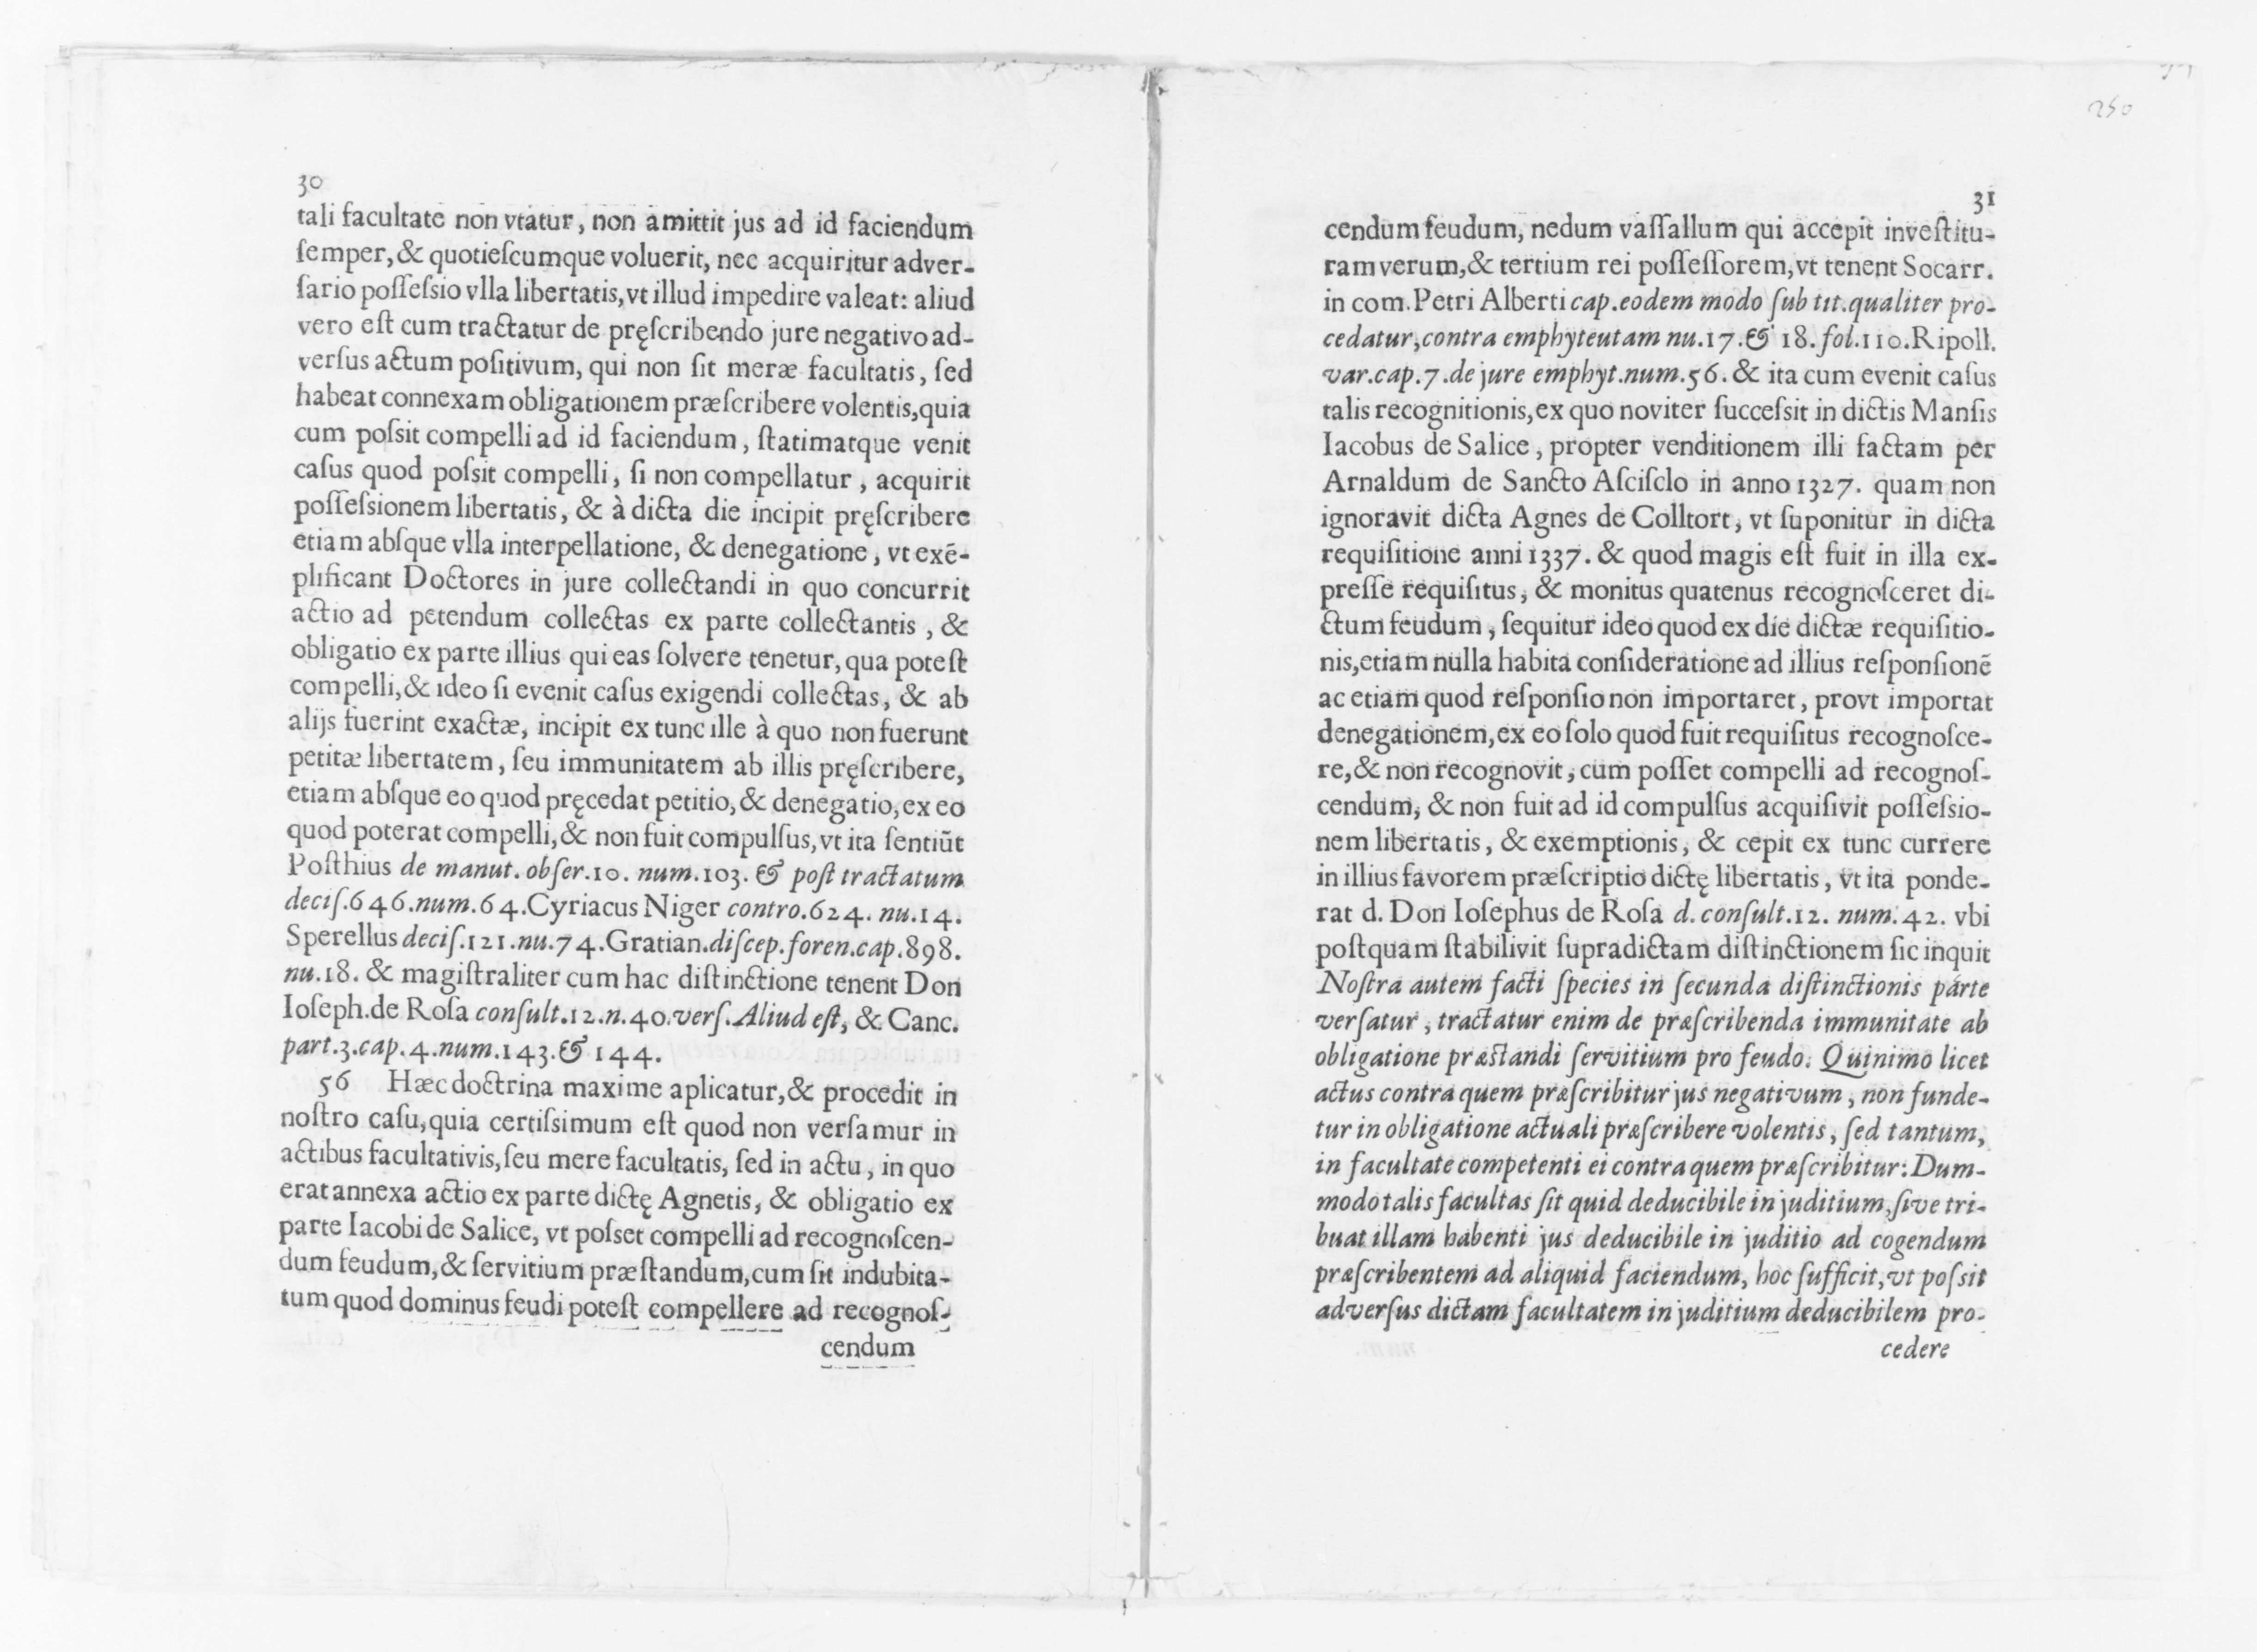 30
tali facultate non vtatur, non amittit jus ad id faciendum
ſemper, & quotieſcumque voluerit, nec acquiritur adver-
ſario poſſeſsio vlla libertatis, vt illud impedire valeat: aliud
vero eſt cum tractatur de pręſcribendo jure negativo ad-
verſus actum poſitivum, qui non ſit meræ facultatis, ſed
habeat connexam obligationem præſcribere volentis, quia
cum poſsit compelli ad id faciendum, ſtatimatque venit
caſus quod poſsit compelli, ſi non compellatur, acquirit
poſſeſsionem libertatis, & à dicta die incipit pręſcribere
etiam abſque vlla interpellatione, & denegatione, vt exē-
plificant Doctores in jure collectandi in quo concurrit
actio ad petendum collectas ex parte collectantis, &
obligatio ex parte illius qui eas ſolvere tenetur, qua poteſt
compelli, & ideo ſi evenit caſus exigendi collectas, & ab
alijs fuerint exactæ, incipit ex tunc ille à quo non fuerunt
petitæ libertatem, ſeu immunitatem ab illis pręſcribere,
etiam abſque eo quod pręcedat petitio, & denegatio, ex eo
quod poterat compelli, & non fuit compulſus, vt ita ſentiūt
Poſthius de manut. obſer.10. num.103. & poſt tractatum
deciſ.646.num.64. Cyriacus Niger contro.624. nu.14.
Sperellus deciſ.121.nu.74. Gratian. diſcep. foren. cap.898.
nu.18. & magiſtraliter cum hac diſtinctione tenent Don
Ioſeph. de Roſa conſult.12.n.40. verſ. Aliud eſt, & Canc.
part.3.cap.4.num.143. & 144.
56 Hæc doctrina maxime aplicatur, & procedit in
noſtro caſu, quia certiſsimum eſt quod non verſamur in
actibus facultativis, ſeu mere facultatis, ſed in actu, in quo
erat annexa actio ex parte dictę Agnetis, & obligatio ex
parte Iacobi de Salice, vt poſset compelli ad recognoſcen-
dum feudum, & ſervitium præſtandum, cum ſit indubita-
tum quod dominus feudi poteſt compellere ad recognoſ-
cendum
250
31
cendum feudum, nedum vaſſallum qui accepit inveſtitu-
ram verum, & tertium rei poſſeſſorem, vt tenent Socarr.
in com. Petri Alberti cap. eodem modo ſub tit. qualiter pro-
cedatur, contra emphyteutam nu.17. & 18. fol.110. Ripoll.
var. cap.7. de jure emphyt. num.56. & ita cum evenit caſus
talis recognitionis, ex quo noviter ſucceſsit in dictis Manſis
Iacobus de Salice, propter venditionem illi factam per
Arnaldum de Sancto Aſciſclo in anno 1327. quam non
ignoravit dicta Agnes de Colltort, vt ſuponitur in dicta
requiſitione anni 1337. & quod magis eſt fuit in illa ex-
preſſe requiſitus, & monitus quatenus recognoſceret di-
ctum feudum, ſequitur ideo quod ex die dictæ requiſitio-
nis, etiam nulla habita conſideratione ad illius reſponſionē
ac etiam quod reſponſio non importaret, provt importat
denegationem, ex eo ſolo quod fuit requiſitus recognoſce-
re, & non recognovit, cum poſſet compelli ad recognoſ-
cendum, & non fuit ad id compulſus acquiſivit poſſeſsio-
nem libertatis, & exemptionis, & cepit ex tunc currere
in illius favorem præſcriptio dictę libertatis, vt ita ponde-
rat d. Don Ioſephus de Roſa d. conſult.12. num.42. vbi
poſtquam ſtabilivit ſupradictam diſtinctionem ſic inquit
Noſtra autem facti ſpecies in ſecunda diſtinctionis parte
verſatur, tractatur enim de præſcribenda immunitate ab
obligatione præſtandi ſervitium pro feudo. Quinimo licet
actus contra quem præſcribitur jus negativum, non funde-
tur in obligatione actuali præſcribere volentis, ſed tantum,
in facultate competenti ei contra quem præſcribitur: Dum-
modo talis facultas ſit quid deducibile in juditium, ſive tri-
buat illam habenti jus deducibile in juditio ad cogendum
præſcribentem ad aliquid faciendum, hoc ſufficit, vt poſsit
adverſus dictam facultatem in juditium deducibilem pro-
cedere